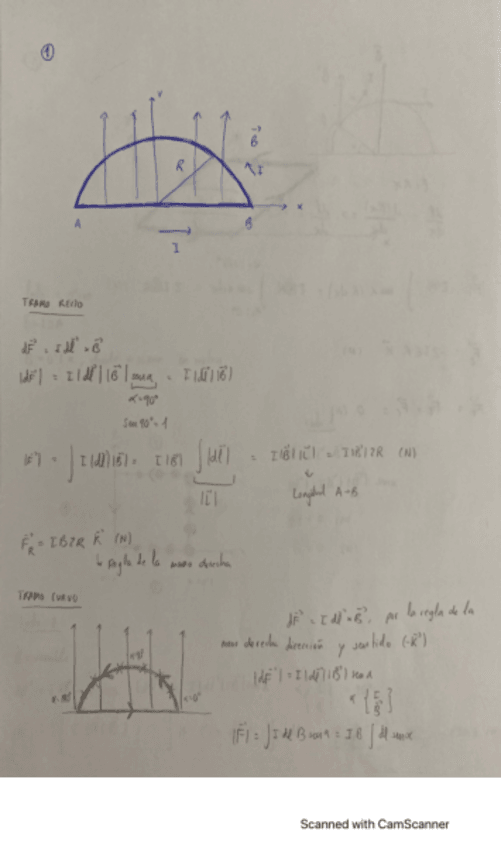 ①
Y
B⃗
R
I
X
A
B
I
TRAMO RECTO
dF⃗ = I dl⃗ × B⃗
|dF⃗| = I |dl⃗| |B⃗| sen α = I |dl⃗| |B⃗|
α = 90°
Sen 90° = 1
|F⃗| = ∫ I |dl⃗| |B⃗| = I |B⃗| ∫ |dl⃗| = I |B⃗| |L⃗| = I |B⃗| 2R (N)
|L⃗|
Longitud A-B
F⃗R = I B 2R K⃗ (N)
↳ regla de la mano derecha
TRAMO CURVO
dF⃗ = I dl⃗ × B⃗, por la regla de la
mano derecha dirección y sentido (-K⃗)
|dF⃗| = I |dl⃗| |B⃗| sen α
α { I B⃗ }
|F⃗| = ∫ I dl B sen α = I B ∫ dl sen α
Scanned with CamScanner